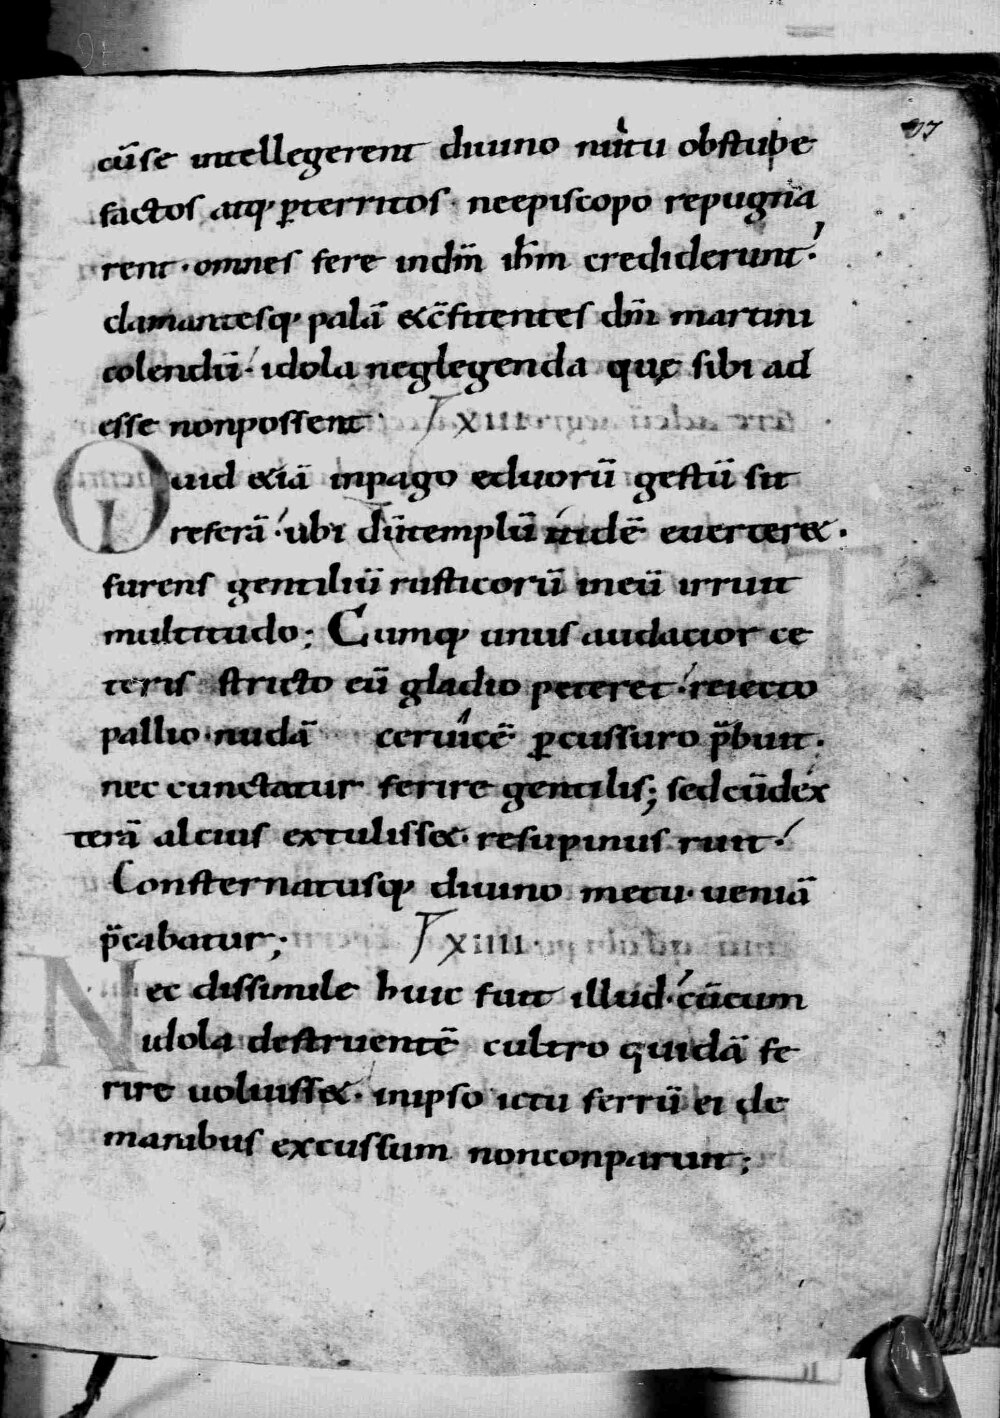 17
cūse intellegerent diuino nutu obstupe
factos atq; p̄territos · neepiscopo repugna
rent · omnes fere indn̄m ih̄m crediderunt ·
clamantesq; palā &c̄fitentes dn̄m martini
colendū · idola neglegenda quę sibi ad
esse nonpossent · xiii
Quid &iā inpago eduorū gestū sit
referā · ubi dūtemplū itidē euerter& ·
furens gentiliū rusticorū ineū irruit
multitudo; Cumq; unus audacior ce
teris stricto eū gladio peteret · reiecto
pallio nudā ceruicē p̄cussuro p̄buit ·
nec cunctatur ferire gentilis; sedcūdex
terā alcius extuliss& · resupinus ruit ·
Consternatusq; diuino metu · ueniā
p̄cabatur; xiiii ·
Nec dissimile huic fuit illud · cūcum
idola destruentē cultro quidā fe
rire uoluiss& · inipso ictu ferrū ei de
manibus excussum nonconparuit;